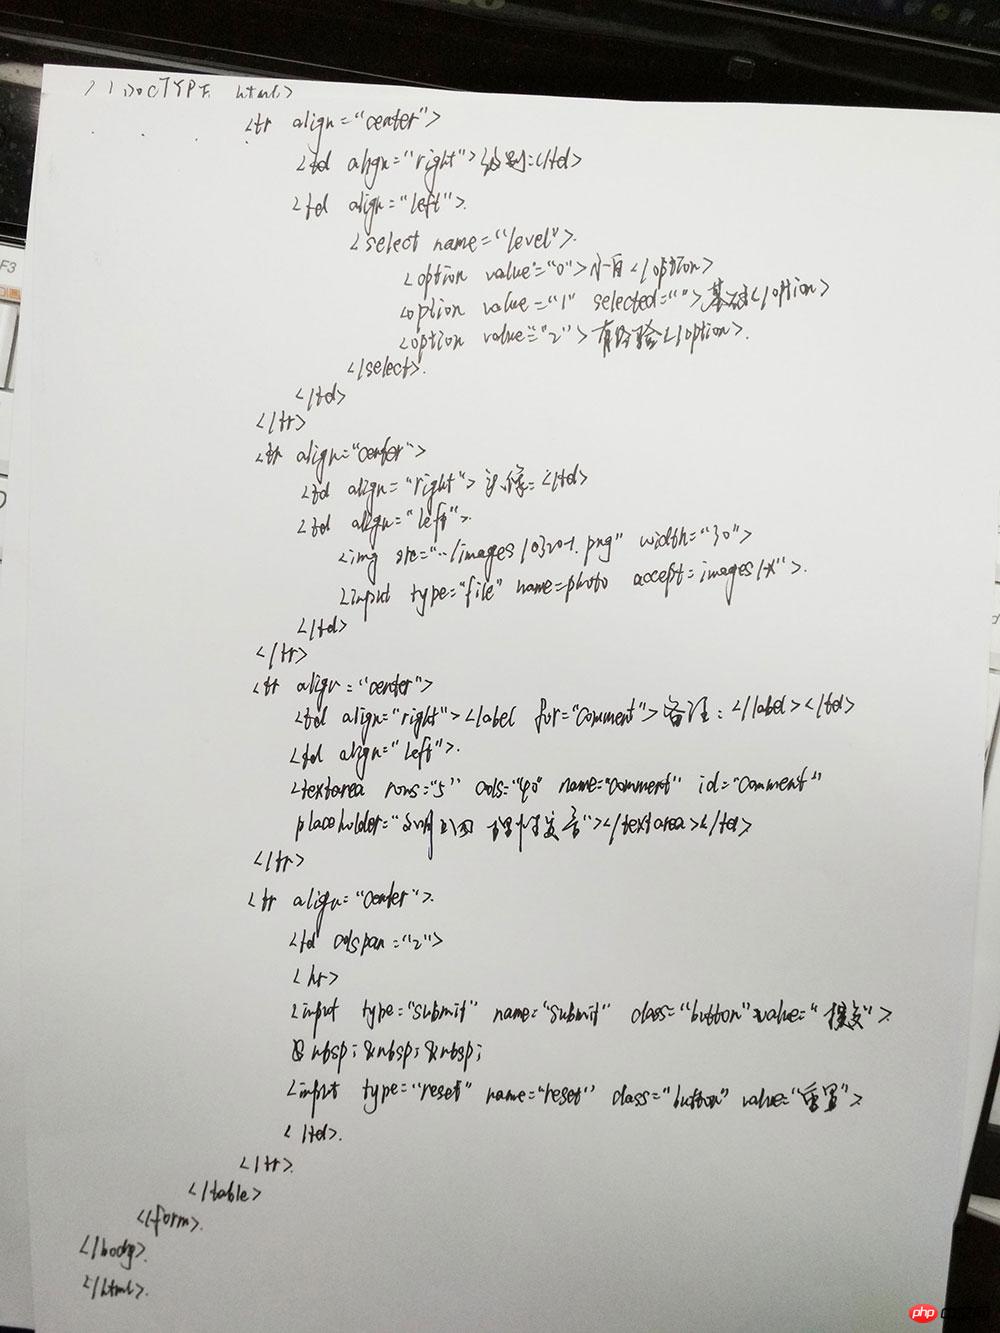 <!DOCTYPE html>
<tr align="center">
<td align="right">级别:</td>
<td align="left">
<select name="level">
<option value="0">小白</option>
<option value="1" selected="">基础</option>
<option value="2">有经验</option>
</select>
</td>
</tr>
<tr align="center">
<td align="right">头像:</td>
<td align="left">
<img src="../images/0320-1.png" width="30">
<input type="file" name=photo accept=images/*">
</td>
</tr>
<tr align="center">
<td align="right"><label for="comment">备注:</label></td>
<td align="left">
<textarea rows="5" cols="40" name="comment" id="comment"
placeholder=" 理性发言"></textarea></td>
</tr>
<tr align="center">
<td colspan="2">
<hr>
<input type="submit" name="submit" class="button" value="提交">
&nbsp;&nbsp;&nbsp;
<input type="reset" name="reset" class="button" value="重置">
</td>
</tr>
</table>
</form>
</body>
</html>
F3
php